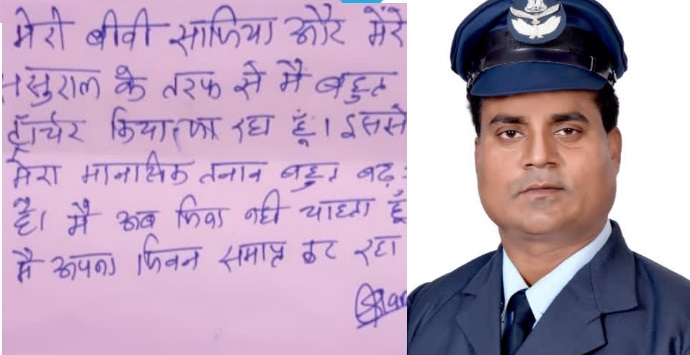 मेरी बीवी साजिया और मेरे
ससुराल के तरफ से मै बहुत
ट्रॉर्चर किया जा रहा हूँ। इससे
मेरा मानसिक तनाव बहुत बढ़
है। मै अब जिना नही चाहता हूँ
मै अपना जिवन समाप्त कर रहा